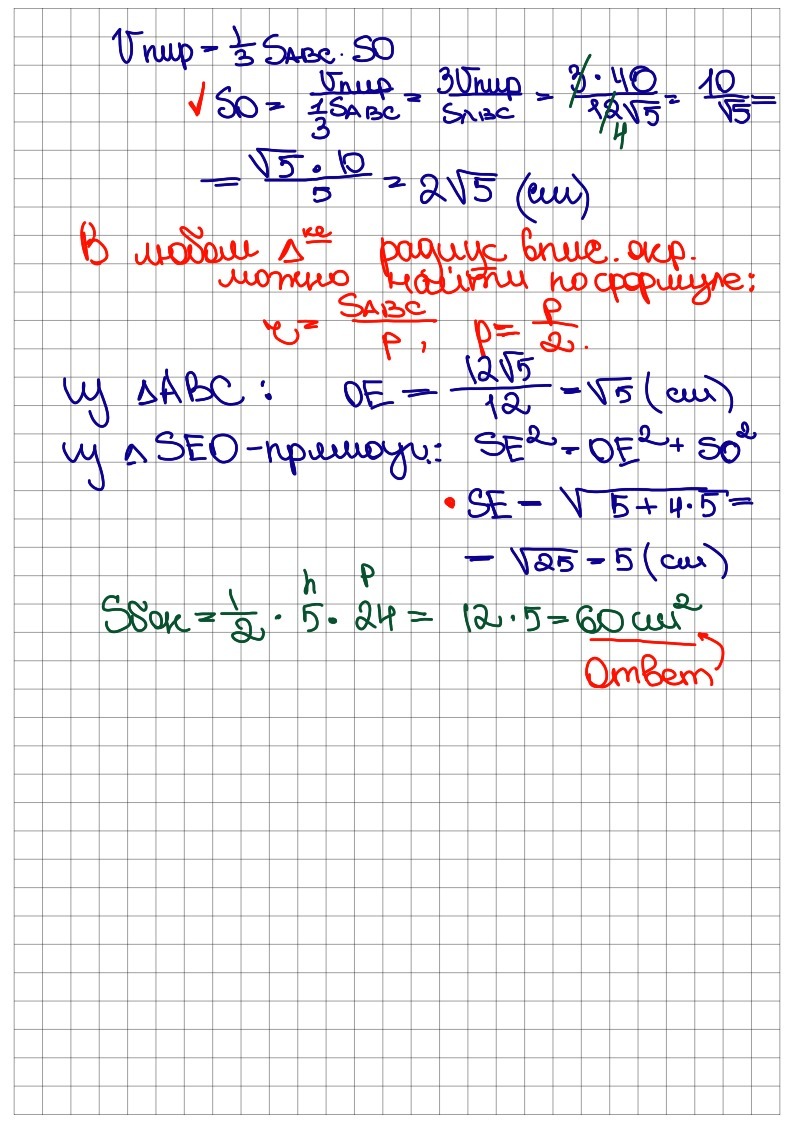 Vпир = 1/3 SABC · SO
✓ SO = Vпир / (1/3 SABC) = 3Vпир / SABC = 3 · 40 / 12√5 = 10 / √5 =
4
= √5 · 10 / 5 = 2√5 (см)
В любом Δке радиус впис. окр.
можно найти по формуле:
r = SABC / p, p = P / 2.
из ΔABC: OE = 12√5 / 12 = √5 (см)
из ΔSEO-прямоуг.: SE² = OE² + SO²
• SE = √5 + 4·5 =
= √25 = 5 (см)
h P
Sбок = 1/2 · 5 · 24 = 12 · 5 = 60 см²
Ответ